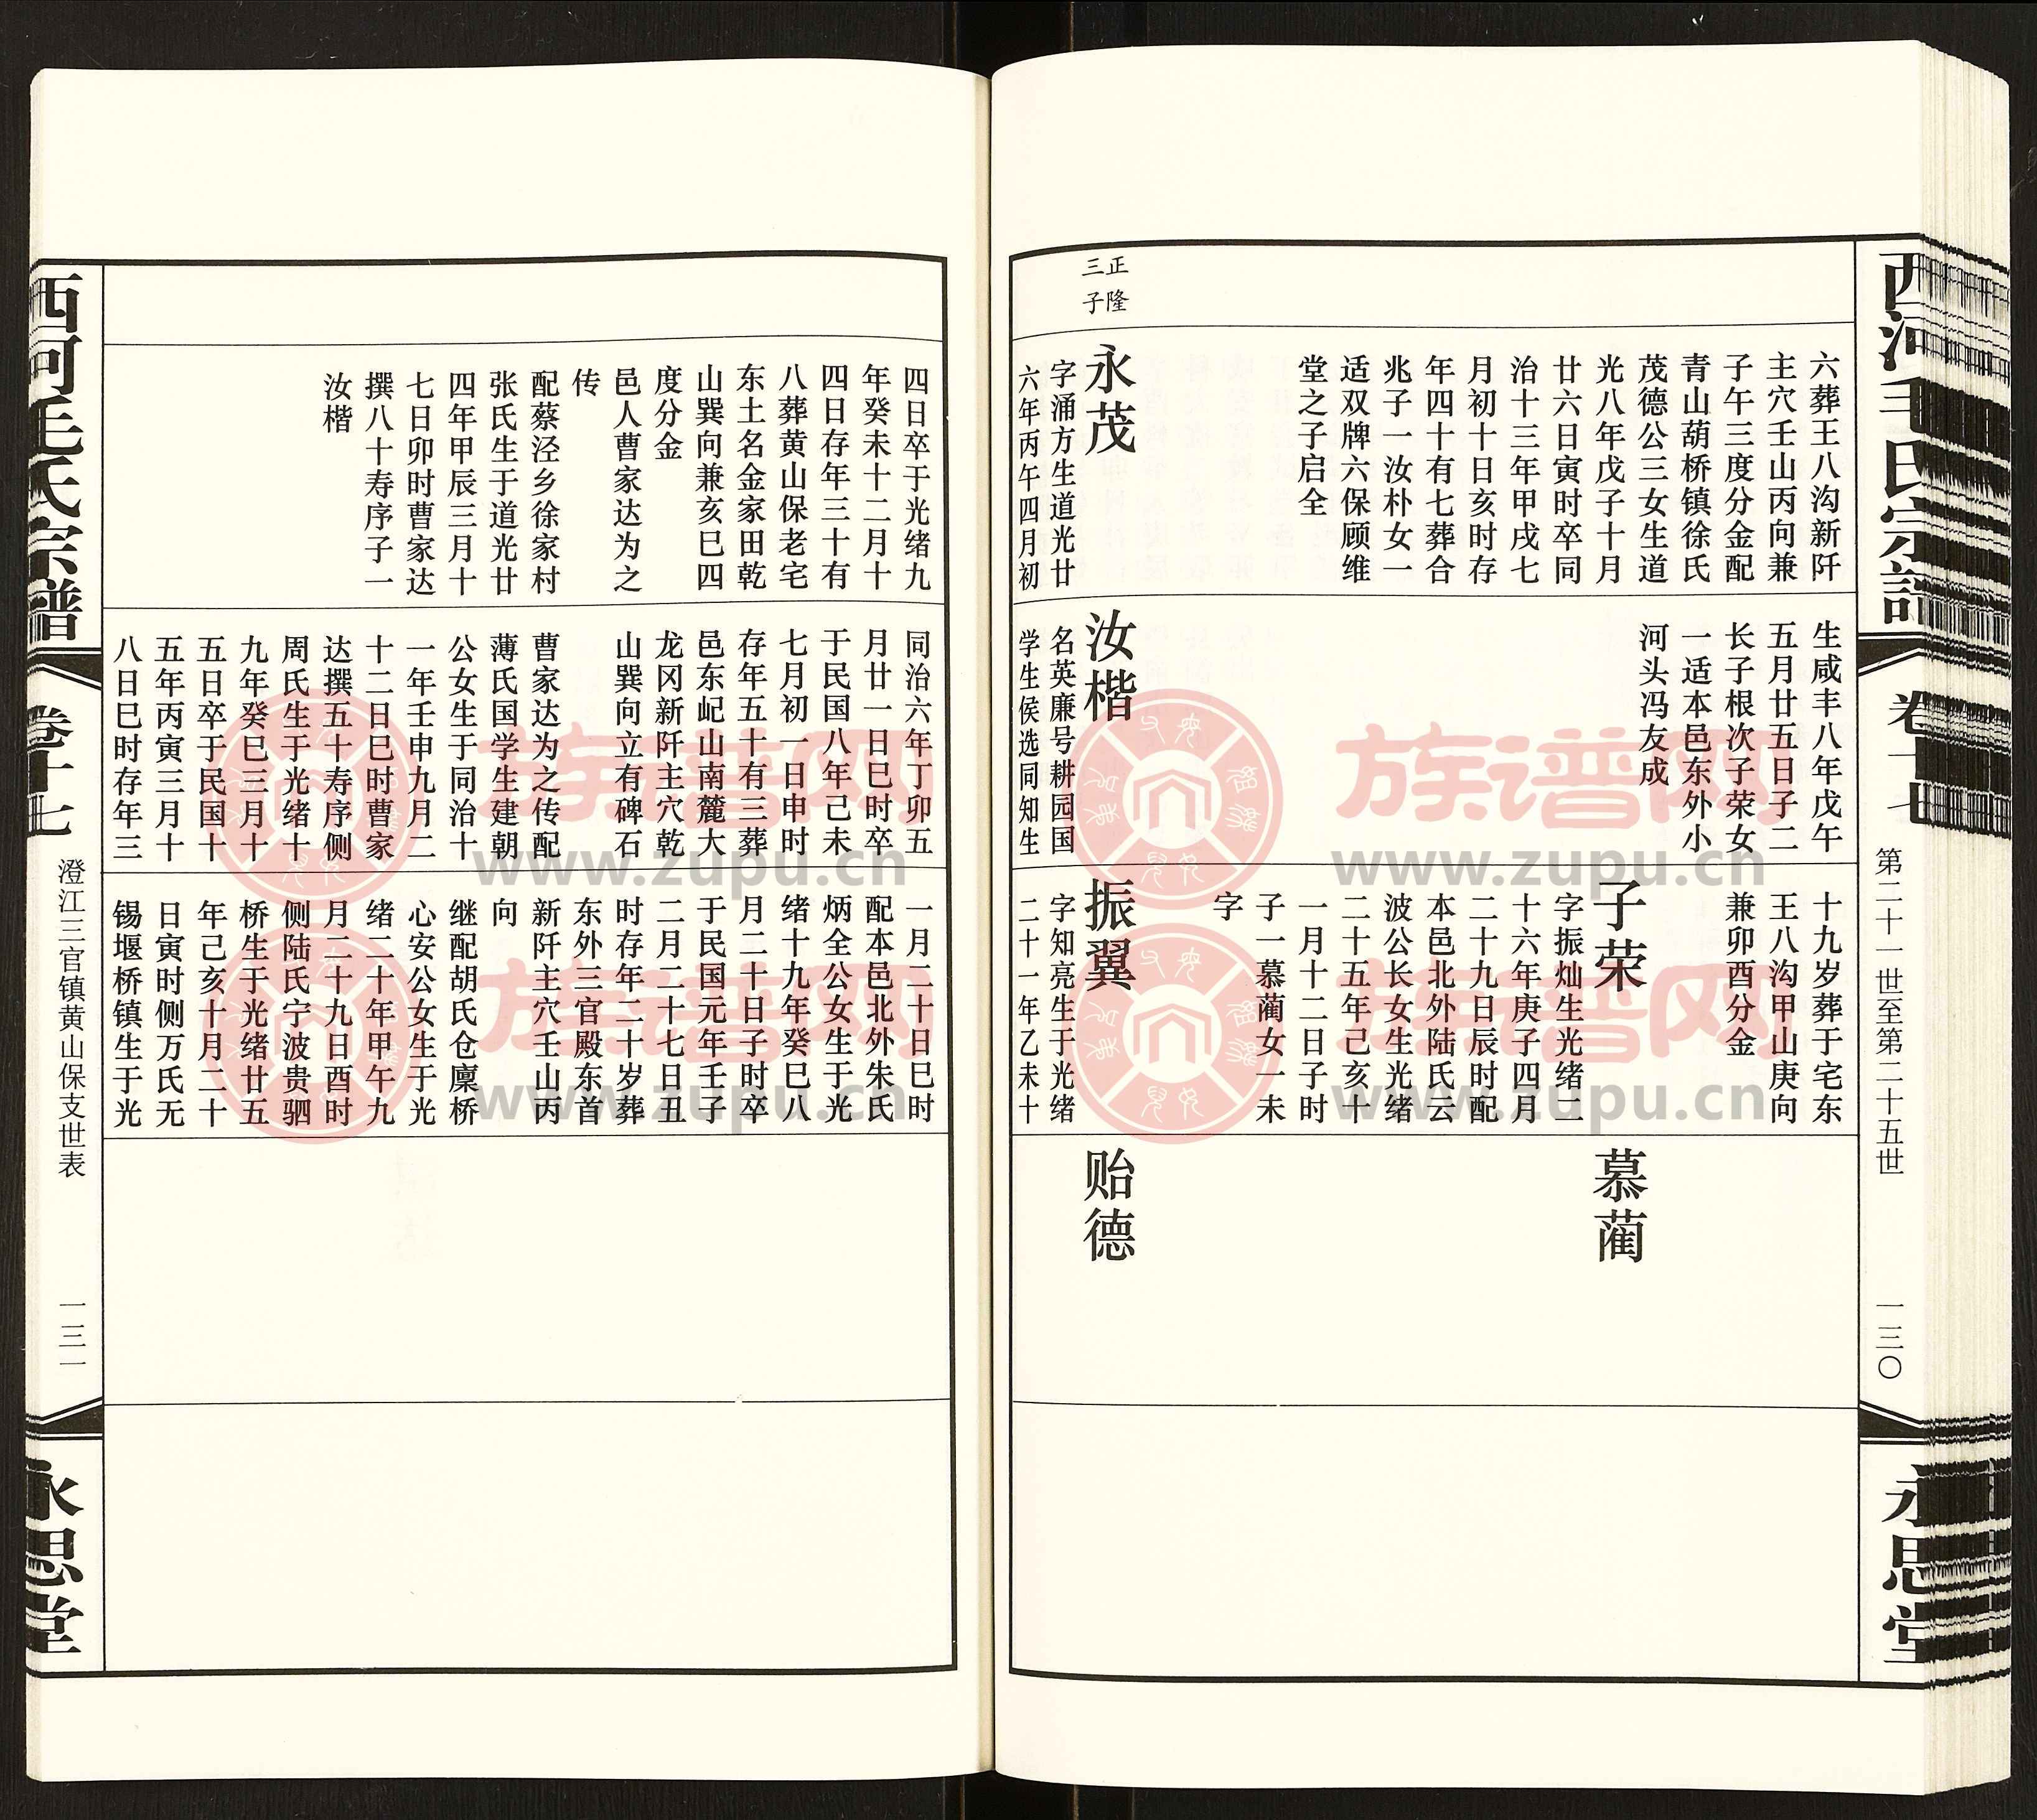 西河毛氏宗谱
卷十七
第二十一世至第二十五世
一三〇
永思堂
六葬王八沟新阡
主穴壬山丙向兼
子午三度分金配
青山葫桥镇徐氏
茂德公三女生道
光八年戊子十月
廿六日寅时卒同
治十三年甲戌七
月初十日亥时存
年四十有七葬合
兆子一汝朴女一
适双牌六保顾维
堂之子启全
正隆
三子
永茂
字涌方生道光廿
六年丙午四月初
生咸丰八年戊午
五月廿五日子二
长子根次子荣女
一适本邑东外小
河头冯友成
汝楷
名英廉号耕园国
学生侯选同知生
十九岁葬于宅东
王八沟甲山庚向
兼卯酉分金
子荣
字振灿生光绪二
十六年庚子四月
二十九日辰时配
本邑北外陆氏云
波公长女生光绪
二十五年己亥十
一月十二日子时
子一慕蔺女一未
字
振翼
字知亮生于光绪
二十一年乙未十
慕蔺
贻德
四日卒于光绪九
年癸未十二月十
四日存年三十有
八葬黄山保老宅
东土名金家田乾
山巽向兼亥巳四
度分金
邑人曹家达为之
传
配蔡泾乡徐家村
张氏生于道光廿
四年甲辰三月十
七日卯时曹家达
撰八十寿序子一
汝楷
同治六年丁卯五
月廿一日巳时卒
于民国八年己未
七月初一日申时
存年五十有三葬
邑东屺山南麓大
龙冈新阡主穴乾
山巽向立有碑石
曹家达为之传配
薄氏国学生建朝
公女生于同治十
一年壬申九月二
十二日巳时曹家
达撰五十寿序侧
周氏生于光绪十
九年癸巳三月十
五日卒于民国十
五年丙寅三月十
八日巳时存年三
一月二十日巳时
配本邑北外朱氏
炳全公女生于光
绪十九年癸巳八
月二十日子时卒
于民国元年壬子
二月二十七日丑
时存年二十岁葬
东外三官殿东首
新阡主穴壬山丙
向
继配胡氏仓廪桥
心安公女生于光
绪二十年甲午九
月二十九日酉时
侧陆氏宁波贵驷
桥生于光绪廿五
年己亥十月二十
日寅时侧万氏无
锡堰桥镇生于光
西河毛氏宗谱
卷十七
澄江三官镇黄山保支世表
一三一
永思堂
族谱网
www.zupu.cn
族谱网
www.zupu.cn
族谱网
www.zupu.cn
族谱网
www.zupu.cn